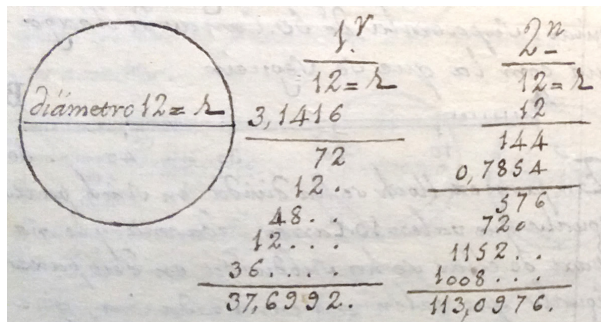 diámetro 12 = r
1.r
12 = r
3,1416
72
12 .
48 . .
12 . . .
36 . . . .
37,6992.
2n
12 = r
12
144
0,7854
576
720
1152 . .
1008 . . .
113,0976.